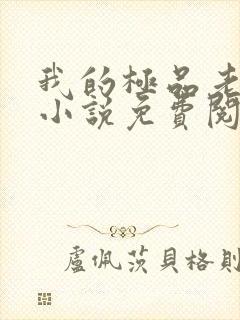 我的極品老
小說免費閱
盧佩茨貝格則